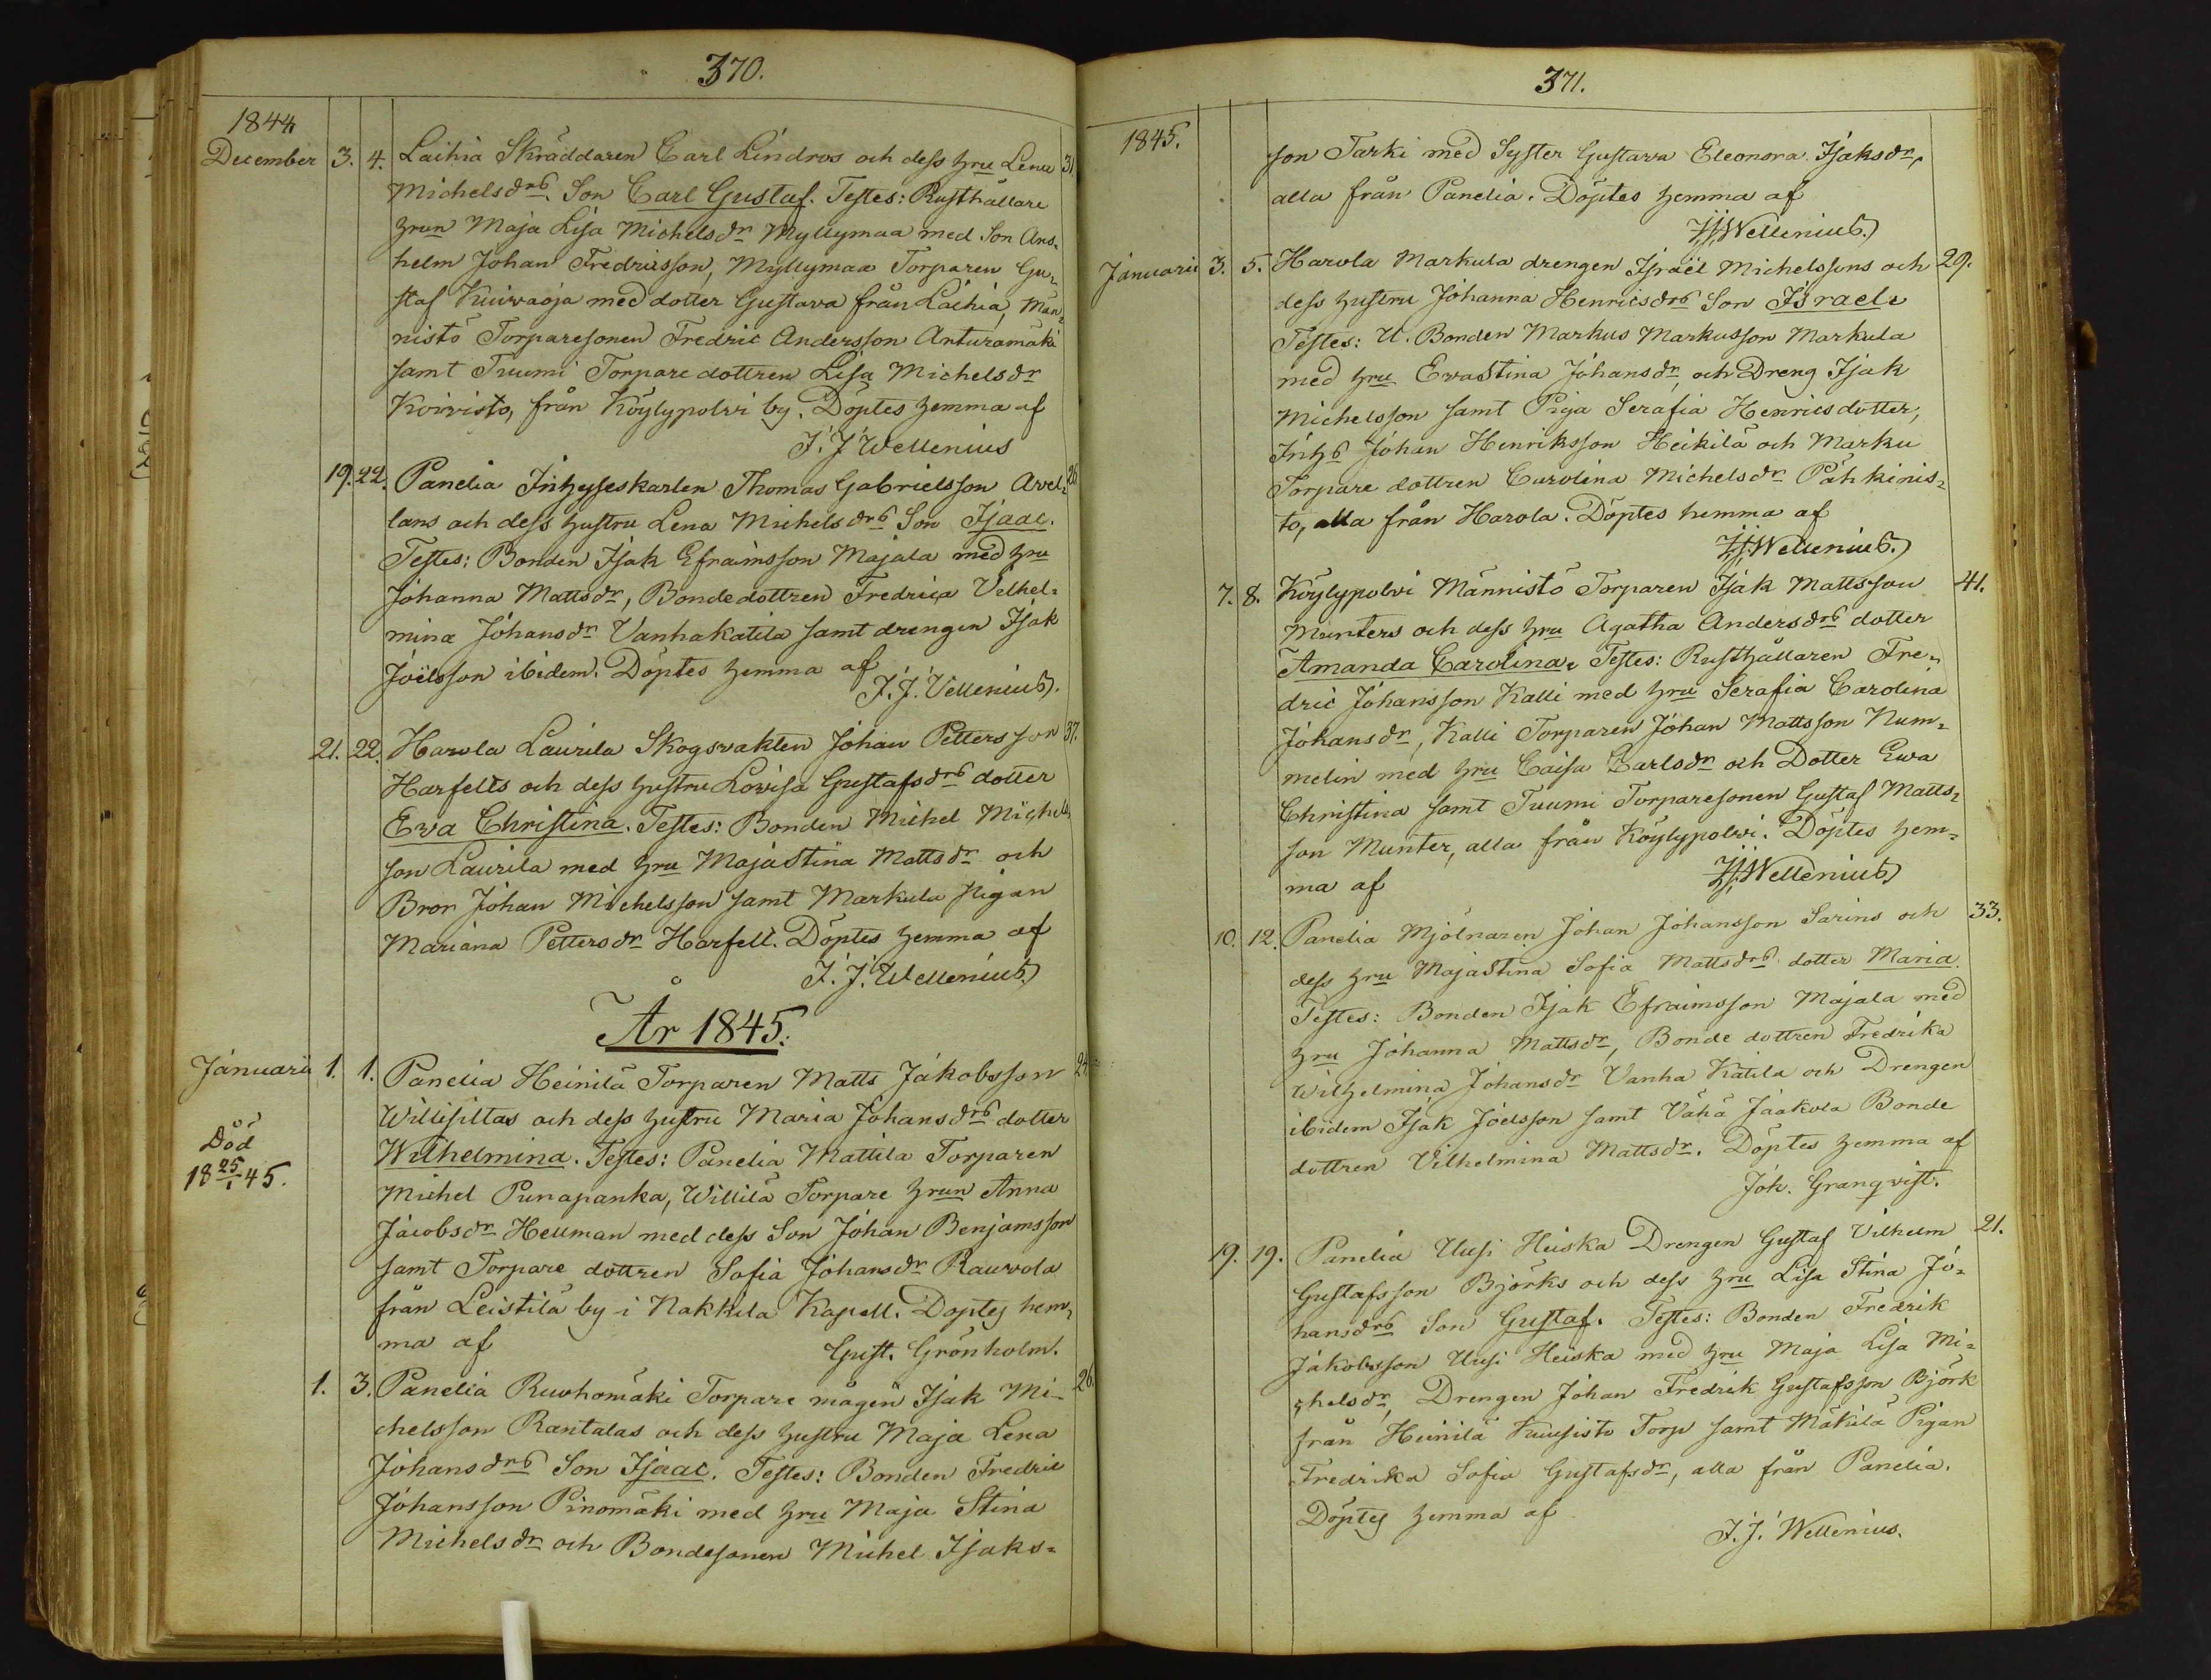 370.
1844
December 3. 4. Laihia Skräddaren Carl Lindros och dess hru Lena 31.
Michelsdrs. Son Carl Gustaf. Testes: Rusthållare
hrun Maja Lisa Michelsdr Myllymaa med Son Ans-
helm Johan Fredricsson, Myllymaa Torparen Gu-
staf Kuivaoja med dotter Gustava från Laihia, Män-
nistö Torparesonen Fredric Andersson Anturamäki
samt Tuumi Torpare dottren Lisa Michelsdr
Koivisto, från Köylypolvi by. Döptes hemma af
J. J. Wellenius
19. 22. Panelia Inhyseskarlen Thomas Gabrielsson Arvel- 26
lans och dess hustru Lena Michelsdrs Son Isaac.
Testes: Bonden Isak Efraimsson Majala med hru
Johanna Mattsdr, Bondedottren Fredrica Velhel-
mina Johansdr Vanhakatila samt drengen Isak
Joëlsson ibidem. Döptes hemma af
J. J. Vellenius.
21. 22. Harola Laurila Skogsvakten Johan Pettersson 37.
Harfelts och dess hustru Lovisa Gustafsdrs dotter
Ewa Christina. Testes: Bonden Michel Michels
son Laurila med hru MajaStina Mattsdr och
Bror Johan Michelsson samt Markula Pigan
Mariana Pettersdr Harfelt. Döptes hemma af
J. J. Wellenius.
År 1845.
Januarii 1. 1. Panelia Heinilä Torparen Matts Jakobsson 24.
Willisillas och dess hustru Maria Johansdrs dotter
Död
18 25/1 45.
Wilhelmina. Testes: Panelia Mattila Torparen
Michel Punapanka, Willilä Torpare hrun Anna
Jacobsdr Hellman med dess Son Johan Benjamsson
samt Torpare dottren Sofia Johansdr Rauvola
från Leistilä by i Nakkila Kapell. Döptes hem-
ma af Gust. Grönholm.
1. 3. Panelia Ruohomäki Torpare mågen Isak Mi- 26.
chelsson Rantalas och dess hustru Maja Lena
Johansdrs Son Isaac. Testes: Bonden Fredric
Johansson Pinomäki med hru Maja Stina
Michelsdr och Bondesonen Michel Isaks-
371.
1845.
son Tarki med Syster Gustava Eleonora Isaksdr,
alla från Panelia. Döptes hemma af
J.J. Wellenius.
Januarii 3. 5. Harola Markula drengen Israël Michelssons och 29.
dess hustru Johanna Henricsdrs Son Israel.
Testes: U. Bonden Markus Markusson Markula
med hru EwaStina Johansdr, och Dreng Isak
Michelsson samt Piga Serafia Henricsdotter,
Inhs Johan Henriksson Heikilä och Marku
Torpare dottren Carolina Michelsdr Pähkinis-
to, alla från Harola. Döptes hemma af
J.J. Wellenius.
7. 8. Köylypolvi Männistö Torparen Isak Mattsson 41.
Munters och dess hru Agatha Andersdrs dotter
Amanda Carolina. Testes: Rusthållaren Fre-
dric Johansson Kalli med hru Serafia Carolina
Johansdr, Kalli Torparen Johan Mattsson Num-
melin med hru Caisa Carlsdr och Dotter Ewa
Christina samt Tuumi Torparesonen Gustaf Matts-
son Munter, alla från Köylypolvi. Döptes hem-
ma af J.J. Wellenius
10. 12. Panelia Mjölnaren Johan Johansson Sarins och 33.
dess hru MajaStina Sofia Mattsdrs dotter Maria.
Testes: Bonden Isak Efraimsson Majala med
hru Johanna Mattsdr, Bonde dottren Fredrika
Wilhelmina Johansdr Vanha Katila och Drengen
ibidem Isak Joelsson samt Vähä Jaakola Bonde
dottren Vilhelmina Mattsdr. Döptes hemma af
Joh. Granqvist.
19. 19. Panelia Uusi Heiska Drengen Gustaf Vilhelm 21.
Gustafsson Björks och dess hru Lisa Stina Jo-
hansdrs Son Gustaf. Testes: Bonden Fredrik
Jakobsson Uusi Heiska med hru Maja Lisa Mi-
chelsdr, Drengen Johan Fredrik Gustafsson Björk
från Heinilä Kuusisto Torp samt Mäkilä Pigan
Fredrika Sofia Gustafsdr, alla från Panelia.
Döptes hemma af
J. J. Wellenius.